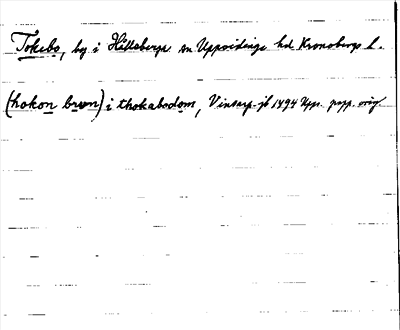 Tokebo, by i Hälleberga sn Uppvidinge hd Kronobergs l.
(hokon brwn) i thokabodom, Vinsarp. jb 1494 Upps. papp. orig.